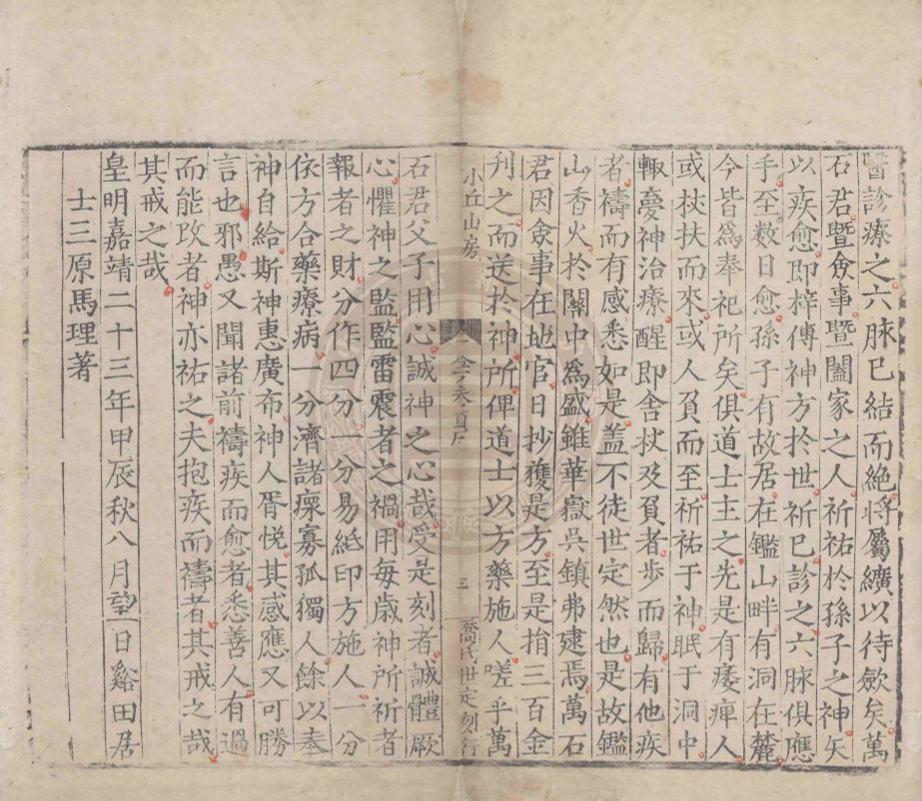 醫診療之六脉已結而絶將屬纊以待歛矣萬
石君暨僉事暨闔家之人祈祐於孫子之神矢
以疾愈即梓傳神方於世祈已診之六脉俱應
手至数日愈孫子有故居在鑑山畔有洞在麓
今皆爲奉祀所矣俱道士主之先是有痿痺人
或扙扶而來或人負而至祈祐于神眠于洞中
輙夢神治療醒即舍扙及負者步而歸有他疾
者禱而有感悉如是盖不徒世定然也是故鑑
山香火於關中爲盛雖華嶽吳鎮弗逮焉萬石
君因僉事在地官日抄獲是方至是捐三百金
刋之而送於神所俾道士以方藥施人嗟乎萬
小丘山房
三
喬氏世定刻行
石君父子用心誠神之心哉受是刻者誠體厥
心懼神之監監雷震者之禍用每歲神所祈者
報者之財分作四分一分易紙印方施人一分
依方合藥療病一分濟諸㾕寡孤獨人餘以奉
神自給斯神惠廣布神人胥悅其感應又可勝
言也邪愚又聞諸前禱疾而愈者悉善人有過
而能攺者神亦祐之夫抱疾而禱者其戒之哉
其戒之哉
皇明嘉靖二十三年甲辰秋八月望一日谿田居
士三原馬理著